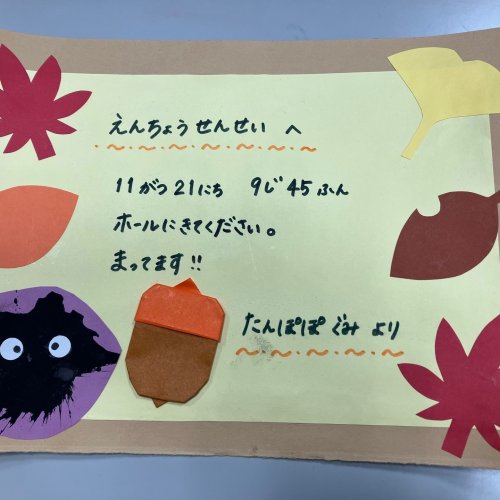 えんちょうせんせい へ
11がつ21にち 9じ45ふん
ホールにきてください。
まってます!!
たんぽぽぐみ より